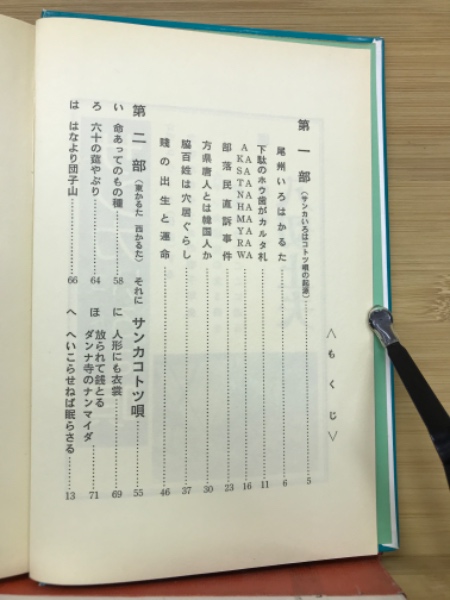 〈もくじ〉
第一部（サンカいろはコトツ唄の起源）……5
尾州いろはかるた……6
下駄のホウ歯がカルタ札……11
AAAAAAAAA
AKSTNHMYRW……16
部落民直訴事件……23
方県唐人とは韓国人か……30
脇百姓は穴居ぐらし……37
賤の出生と運命……46
第二部（東かるた 西かるた）それに サンカコトツ唄……55
い 命あってのもの種……58
ろ 六十の筵やぶり……64
は はなより団子山……66
に 人形にも衣裳……69
ほ 放られて銭とる
ダンナ寺のナンマイダ……71
へ へいこらせねば眠らさる……13